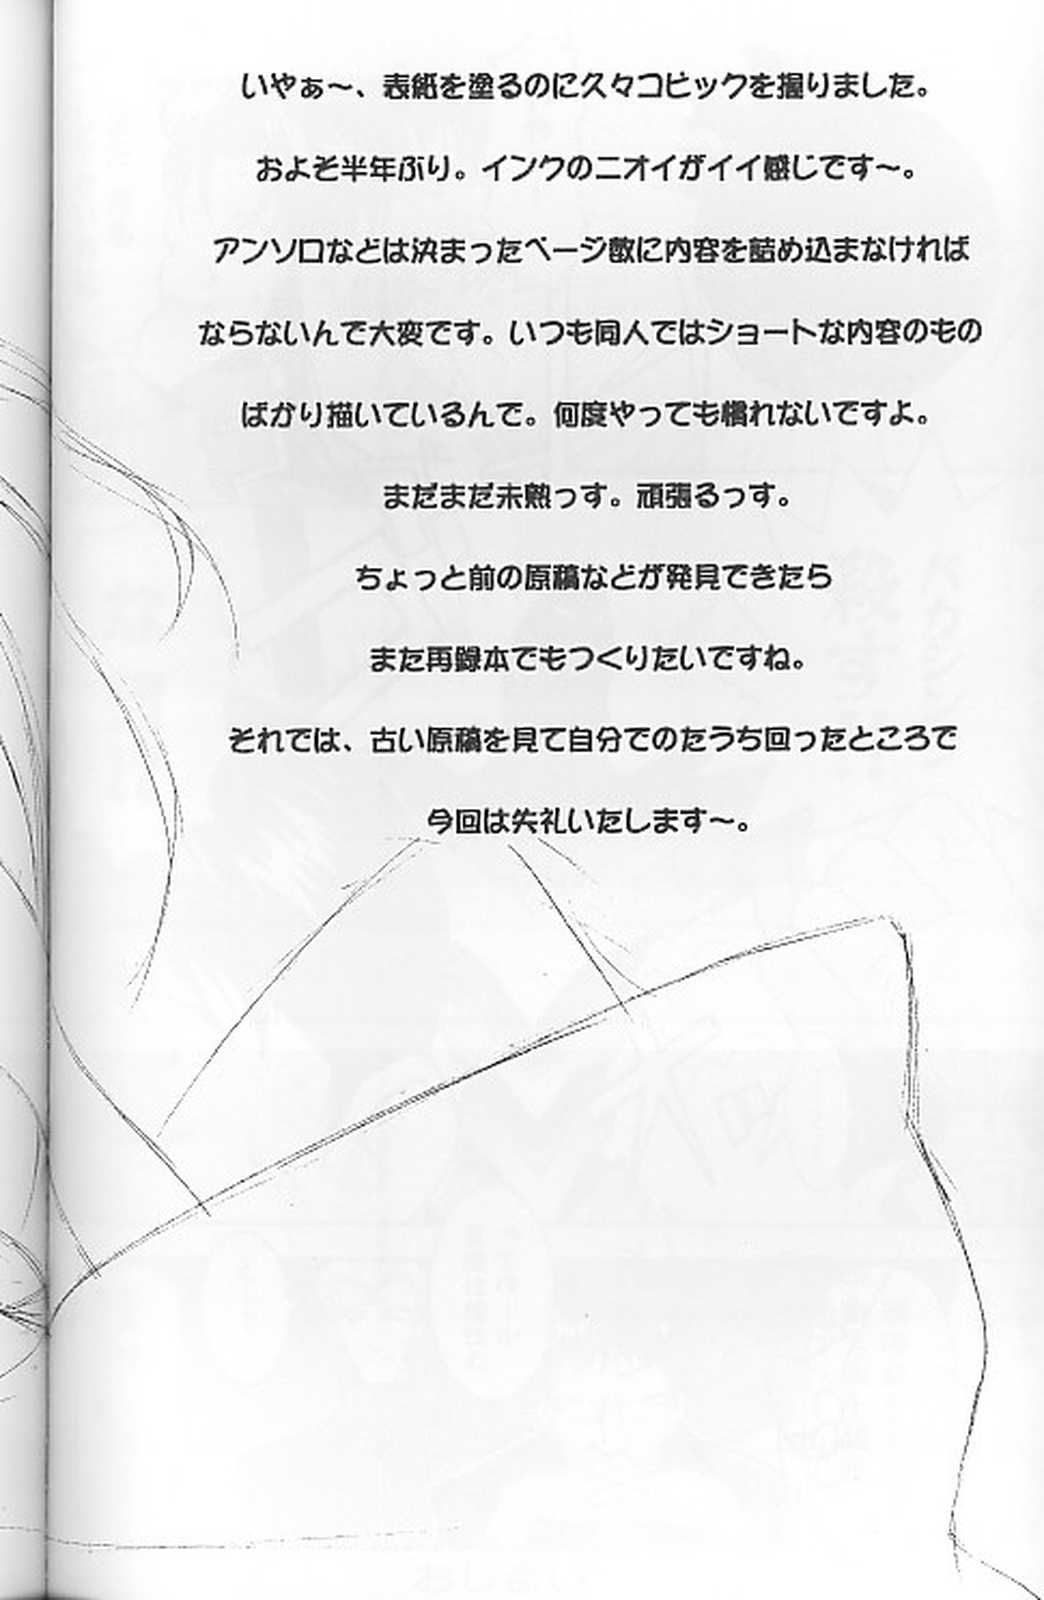 いやぁ～、表紙を塗るのに久々コピックを握りました。
およそ半年ぶり。インクのニオイがイイ感じです～。
アンソロなどは決まったページ数に内容を詰め込まなければ
ならないんで大変です。いつも同人ではショートな内容のもの
ばかり描いているんで。何度やっても慣れないですよ。
まだまだ未熟っす。頑張るっす。
ちょっと前の原稿などが発見できたら
また再録本でもつくりたいですね。
それでは、古い原稿を見て自分でのたうち回ったところで
今回は失礼いたします～。
おしまい